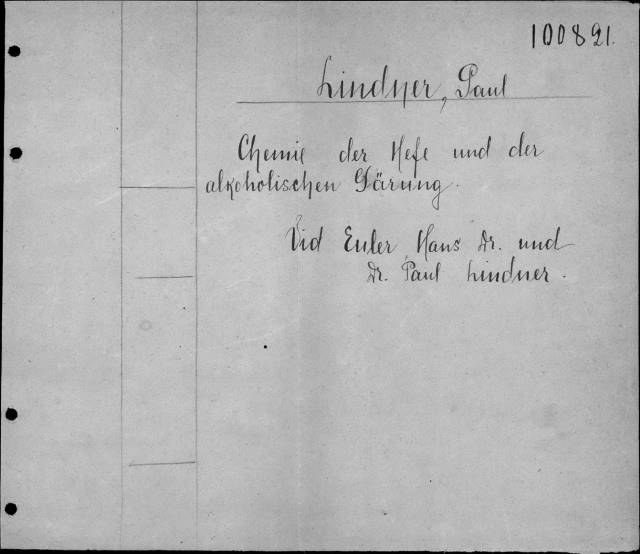 100821.
Lindner, Paul
Chemie der Hefe und der
alkoholischen Gärung.
Vid Euler, Hans Dr. und
Dr. Paul Lindner.